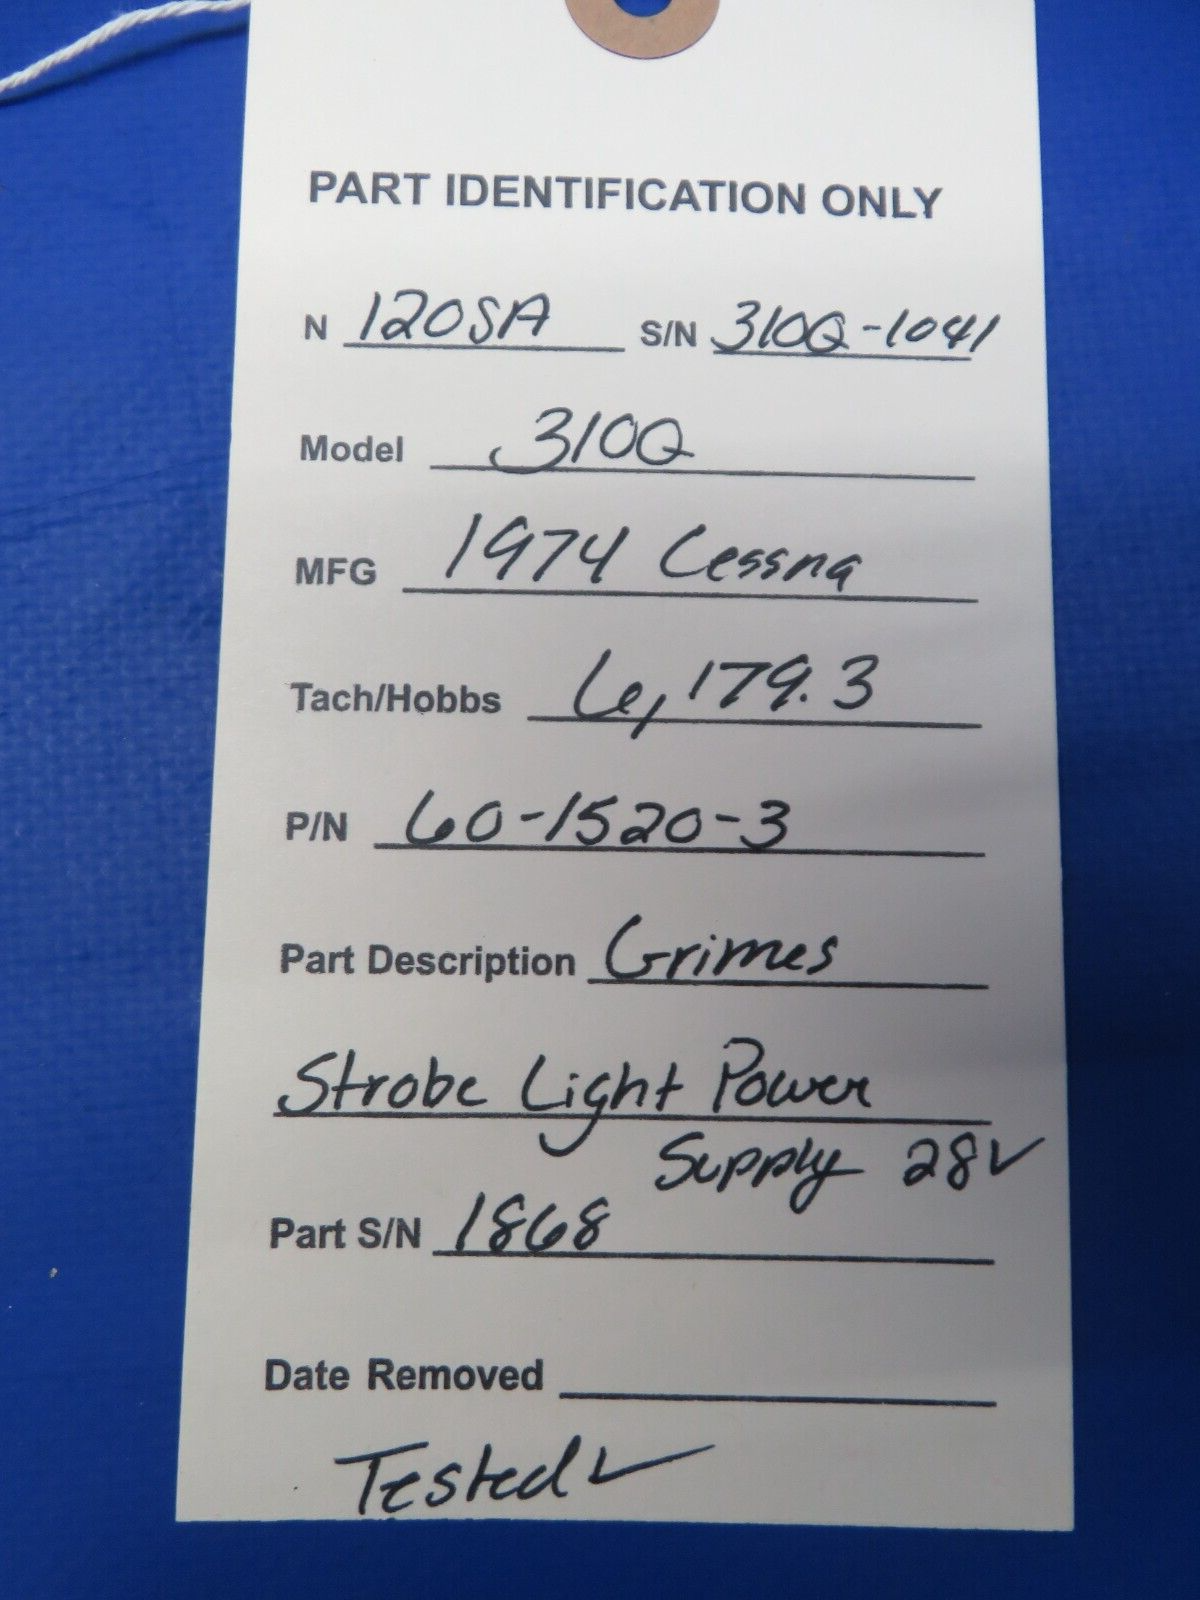 PART IDENTIFICATION ONLY
N 120SA S/N 310Q-1041
Model 310Q
MFG 1974 Cessna
Tach/Hobbs 6,179.3
P/N 60-1520-3
Part Description Grimes
Strobe Light Power
Supply 28V
Part S/N 1868
Date Removed
Tested ✓